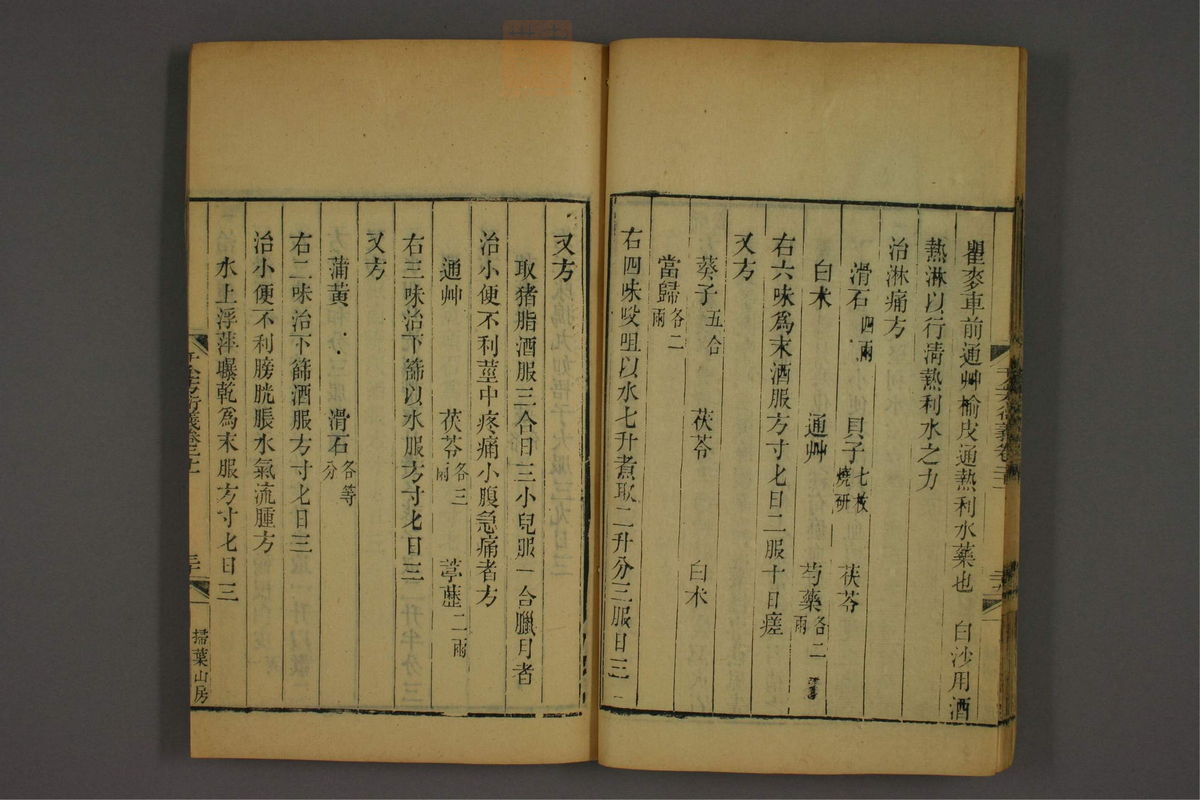 瞿麥車前通艸榆皮通熱利水藥也　白沙用酒
熱淋以行淸熱利水之力
治淋痛方
滑石四兩　貝子七枚燒研　茯苓
白朮　通艸　芍藥各二兩
右六味爲末酒服方寸匕日二服十日瘥
又方
葵子五合　茯苓　白朮
當歸各二兩
右四味㕮咀以水七升煮取二升分三服日三
又方
取猪脂酒服三合日三小兒服一合臘月者
治小便不利莖中疼痛小腹急痛者方
通艸　茯苓各三兩　葶藶二兩
右三味治下篩以水服方寸匕日三
又方
蒲黃　滑石各等分
右二味治下篩酒服方寸匕日三
治小便不利膀胱脹水氣流腫方
水上浮萍曝乾爲末服方寸匕日三
掃葉山房